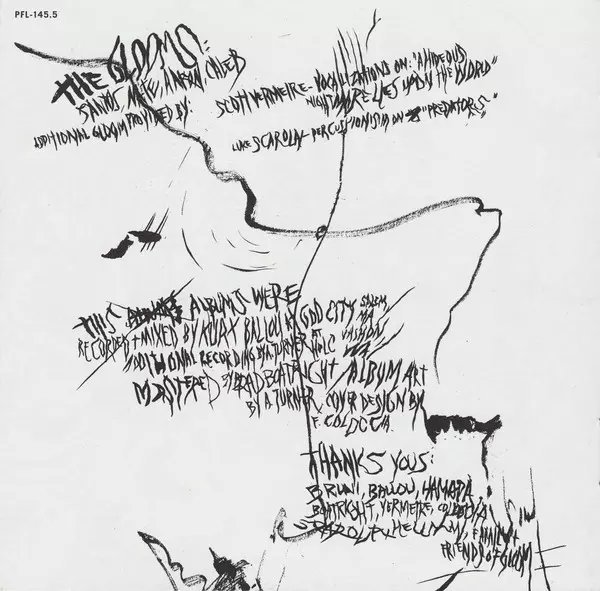 PFL-145.5
THE GLOOMS:
SANTOS, NATE, AARON, CALEB
ADDITIONAL GLOOM PROVIDED BY:
SCOTT VERMEIRE - VOCALIZATIONS ON: "A HIDEOUS
NIGHTMARE LIES UPON THE WORLD"
LUKE SCAROLA - PERCUSSIONISM ON "PREDATORS"
THIS ALBUMS WERE
RECORDED + MIXED BY KURT BALLOU AT GOD CITY SALEM MA
ADDITIONAL RECORDING BY A. TURNER AT HOLC VASHON WA
MASTERED BY BRAD BOATRIGHT / ALBUM ART
BY A. TURNER, COVER DESIGN BY
F. COLOCCIA.
THANKS YOUS:
BRUNI, BALLOU, HAMADA
BOATRIGHT, VERMEIRE, COLOCCIA
SCAROLA, FAMILY +
FRIENDS OF GLOOM